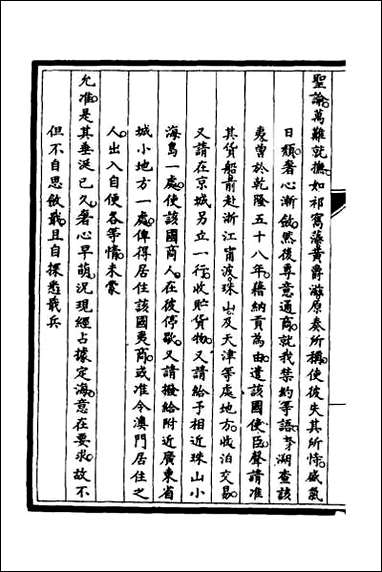 聖諭萬難就撫如祁寯藻黃爵滋原奏所稱使彼失其所恃威氣
日頹著心漸斂然後尊意通商就我禁約等語努溯查該
夷曾於乾隆五十八年藉納貢為由遣該國使臣聲請准
其貨船前赴浙江甯波珠山及天津等處地方收泊交易
又請在京城另立一行收貯貨物又請給予相近珠山小
海島一處使該國商人在彼停歇又請撥給附近廣東省
城小地方一處俾得居住該國夷商或准令澳門居住之
人出入自便各等情未蒙
允准是其垂涎已久奢心早萌況現經占據定海意在要求故不
但不自思斂戢且自探悉戢兵